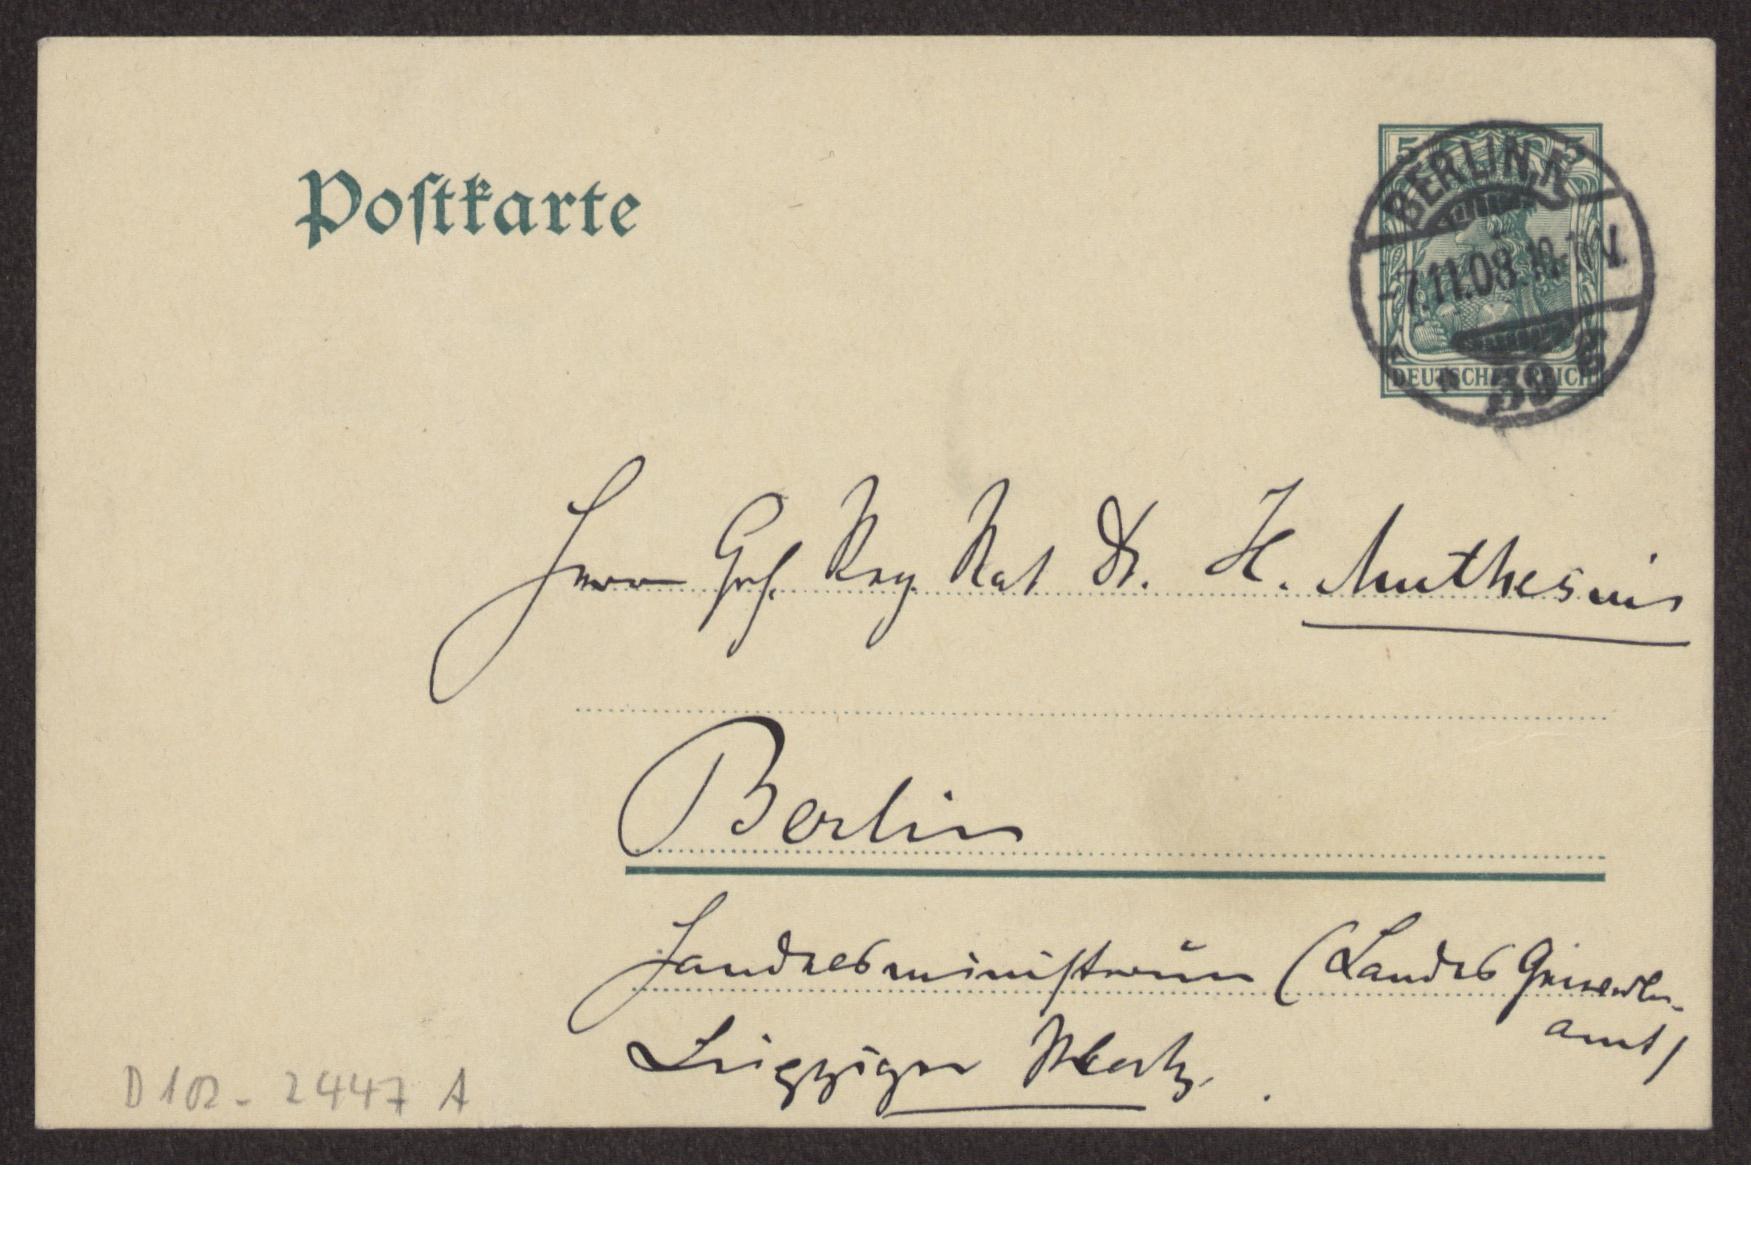 Postkarte
5 5
BERLIN, N.
-7.11.08.10-11V.
39
DEUTSCHES REICH
Herrn Geh. Reg. Rat Dr. H. Muthesius
Berlin
Landesministerium (Landes Gewerbe-
amt)
Leipziger
D 102 - 2447 A